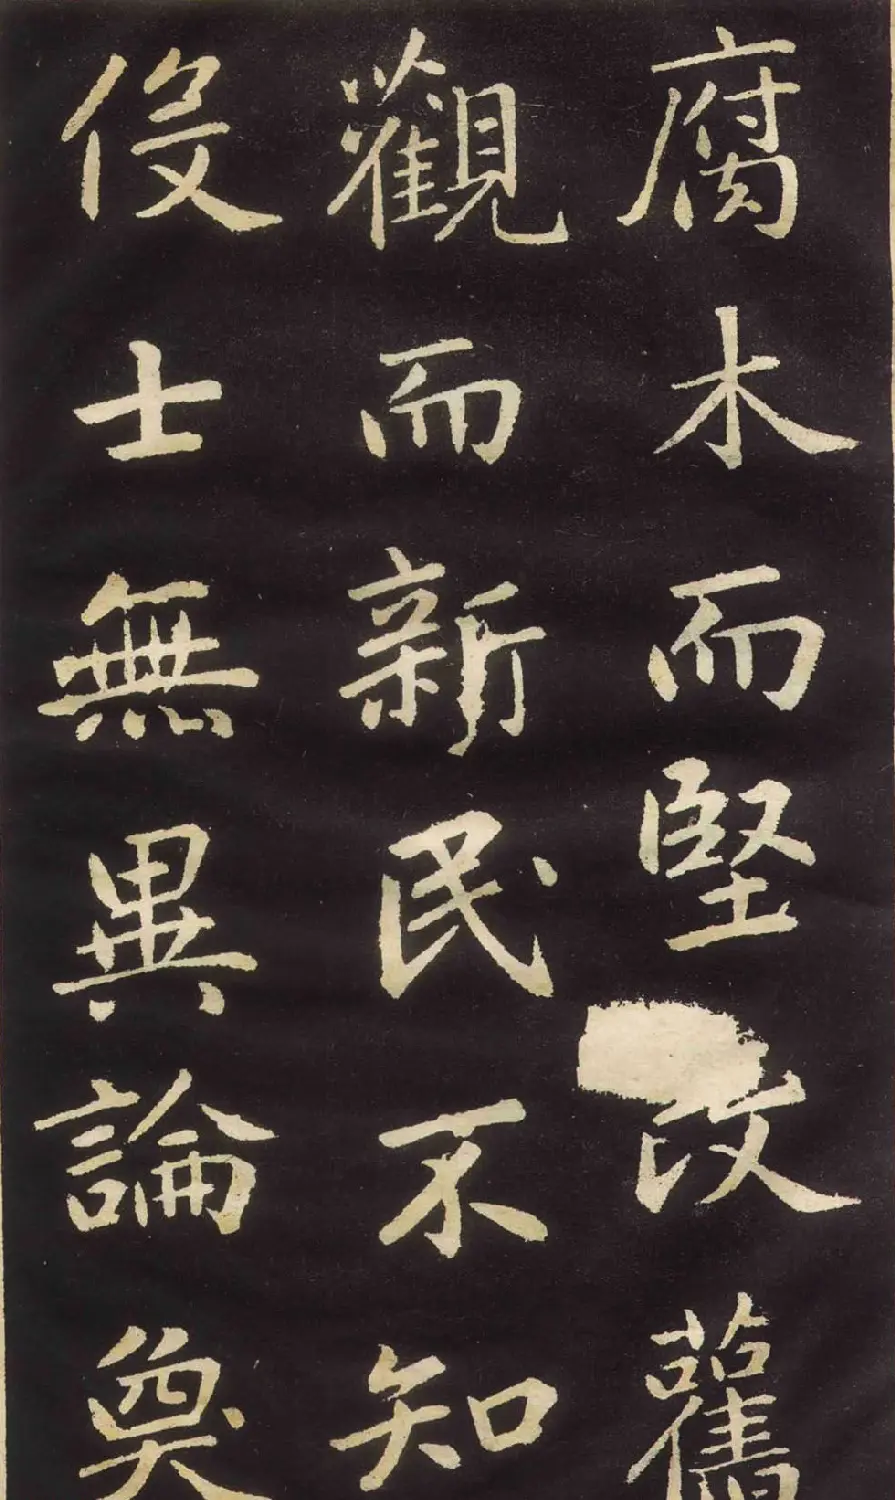 腐木而堅改舊
觀而新民不知
伇士無異論奐